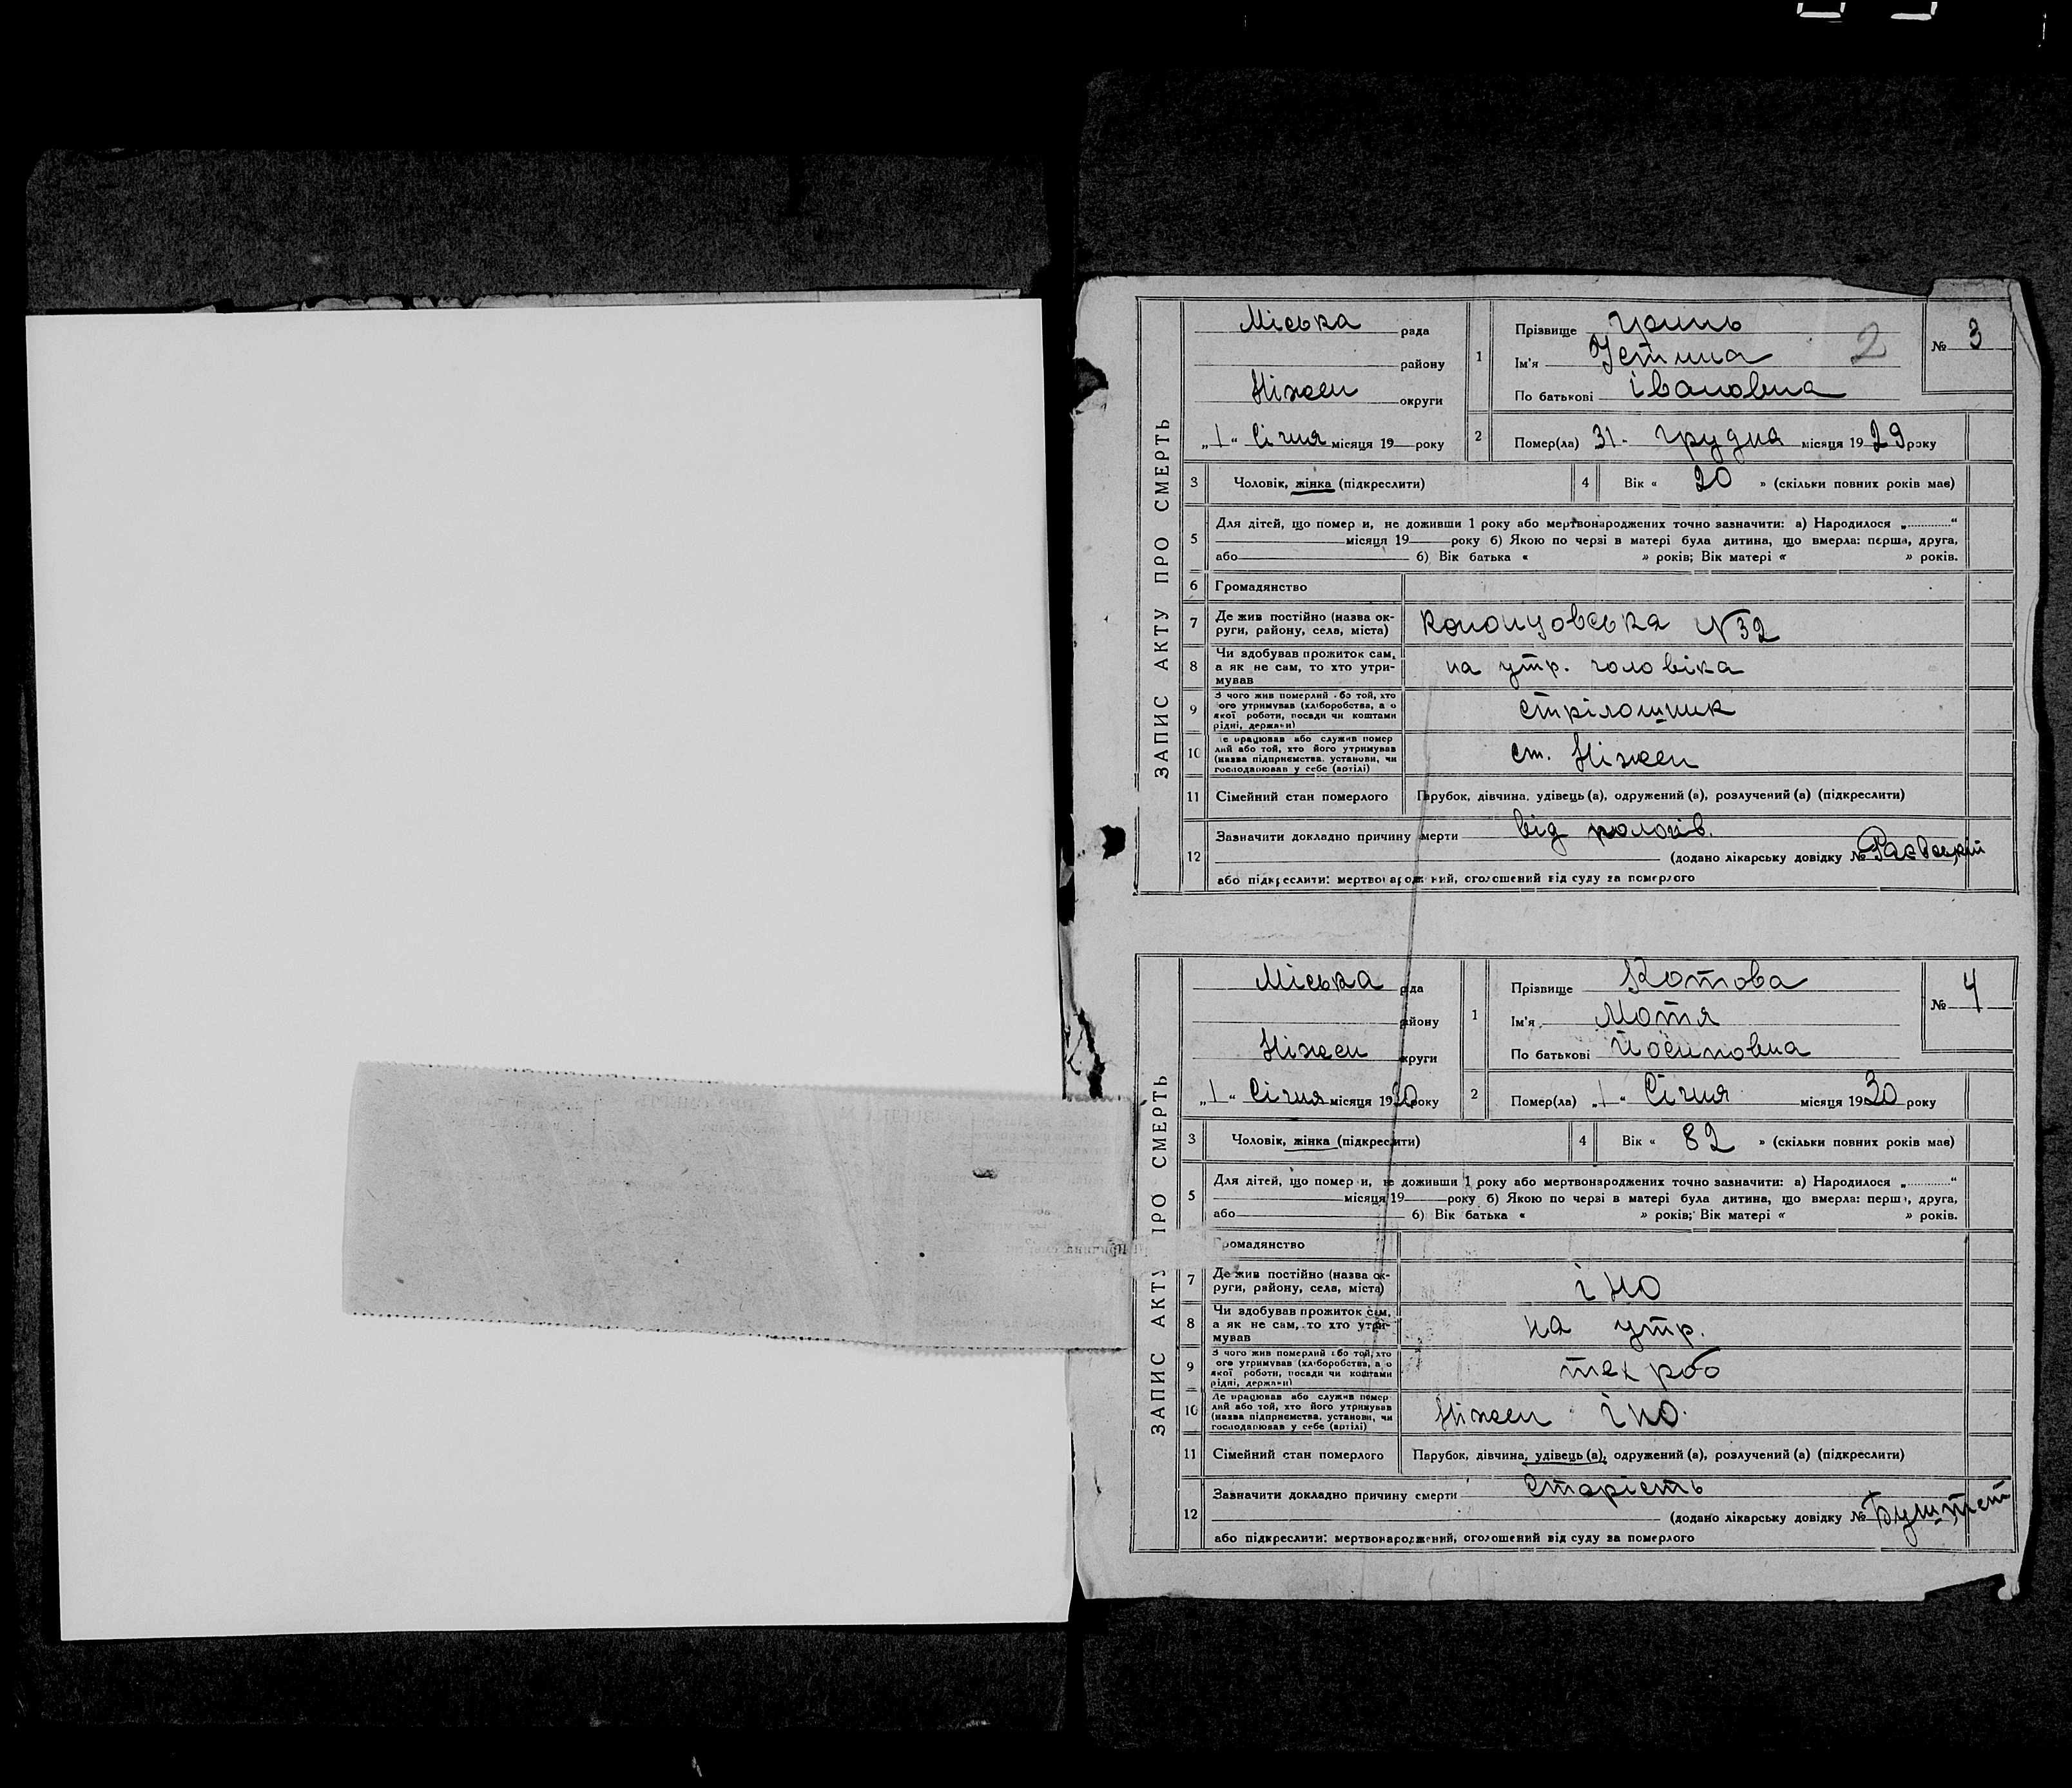 ЗАПИС АКТУ ПРО СМЕРТЬ
Міська рада
району
Ніжен округи
„1“ Січня місяця 19 року
1 Прізвище
Ім'я Устина
По батькові Івановна
2
№ 3
2 Помер(ла) 31 - грудня місяця 1929 року
3 Чоловік, жінка (підкреслити)
4 Вік « 20 » (скільки повних років мав)
5 Для дітей, що помер и, не доживши 1 року або мертвонароджених точно зазначити: а) Народилося „ “
місяця 19 року б) Якою по черзі в матері була дитина, що вмерла: перша, друга,
або б) Вік батька « » років; Вік матері « » років.
6 Громадянство
7 Де жив постійно (назва ок-
руги, району, села, міста) N 32
8 Чи здобував прожиток сам,
а як не сам, то хто утри-
мував на утр. чоловіка
9 З чого жив померлий або той, хто
ого утримував (хліборобства, а о
якої роботи, посади чи коштами
рідні, держави) стрілошник
10 е працював або служив помер
лий або той, хто його утримував
(назва підприємства, установи, чи
господарював у себе (артілі) ст. Ніжен
11 Сімейний стан померлого Парубок, дівчина, удівець (а), одружений (а), розлучений (а) (підкреслити)
12 Зазначити докладно причину смерти від пологів.
(додано лікарську довідку № Раєвский
або підкреслити: мертвонароджений, оголошений від суду за померлого
ЗАПИС АКТУ ПРО СМЕРТЬ
Міська рада
району
Ніжен округи
„1“ Січня місяця 1930 року
1 Прізвище Котова
Ім'я Мотя
По батькові Йосиповна
№ 4
2 Помер(ла) „1“ Січня місяця 1930 року
3 Чоловік, жінка (підкреслити)
4 Вік « 82 » (скільки повних років мав)
5 Для дітей, що помер и, не доживши 1 року або мертвонароджених точно зазначити: а) Народилося „ “
місяця 19 року б) Якою по черзі в матері була дитина, що вмерла: перша, друга,
або б) Вік батька « » років; Вік матері « » років.
Громадянство
7 Де жив постійно (назва ок-
руги, району, села, міста) ІНО
8 Чи здобував прожиток сам,
а як не сам, то хто утри-
мував на утр.
9 З чого жив померлий або той, хто
ого утримував (хліборобства, а о
якої роботи, посади чи коштами
рідні, держави) тех роб
10 Де працював або служив помер
лий або той, хто його утримував
(назва підприємства, установи, чи
господарював у себе (артілі) Ніжен ІНО.
11 Сімейний стан померлого Парубок, дівчина, удівець (а), одружений (а), розлучений (а) (підкреслити)
12 Зазначити докладно причину смерти Старість
(додано лікарську довідку №
або підкреслити: мертвонароджений, оголошений від суду за померлого